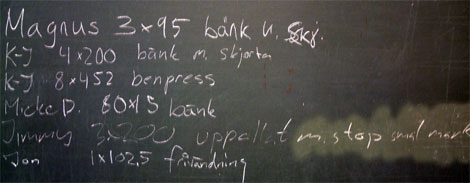 Magnus 3×95 bänk u. skj.
K-J 4×200 bänk m. skjorta
K-J 8×452 benpress
Micke D. 80×15 bänk
Jimmy 3×200 uppallat m. stop smal
Jon 1×102,5 frivändning